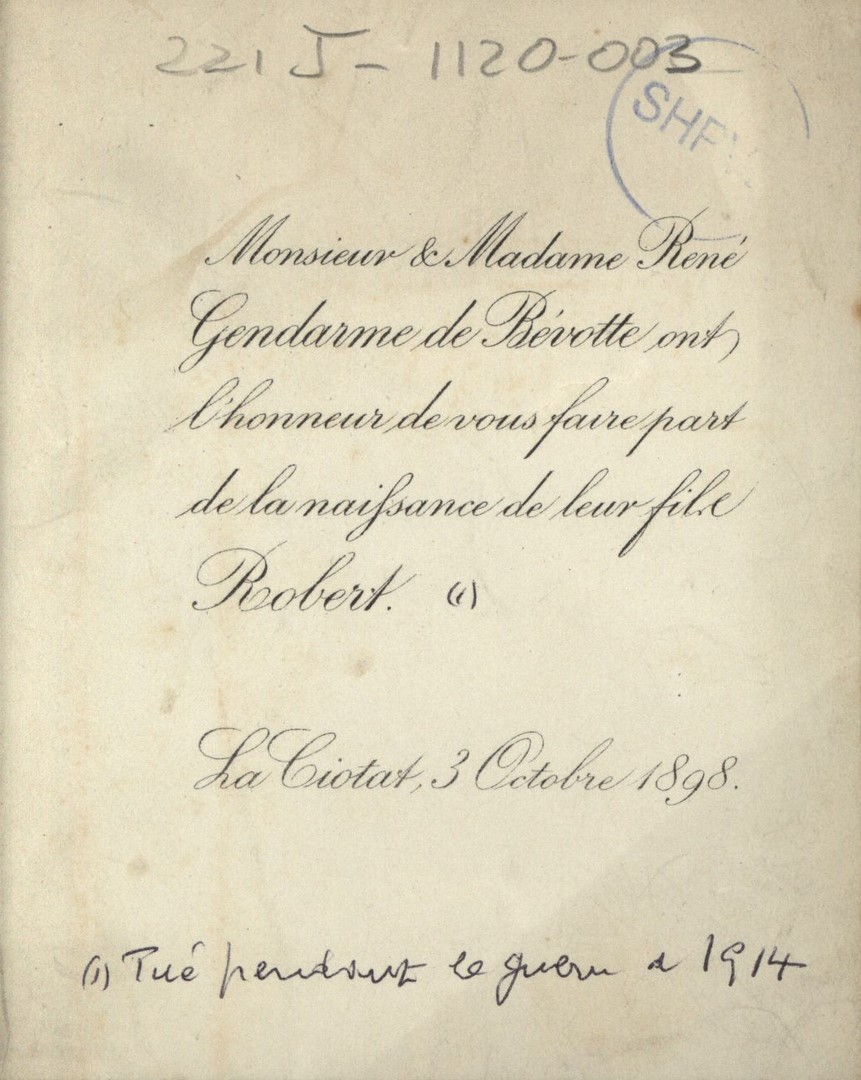 221 J - 1120-003
SHF
Monsieur & Madame René
Gendarme de Bévotte ont
l'honneur de vous faire part
de la naissance de leur fils
Robert. (1)
La Ciotat, 3 Octobre 1898.
(1) Tué pendant la guerre de 1914